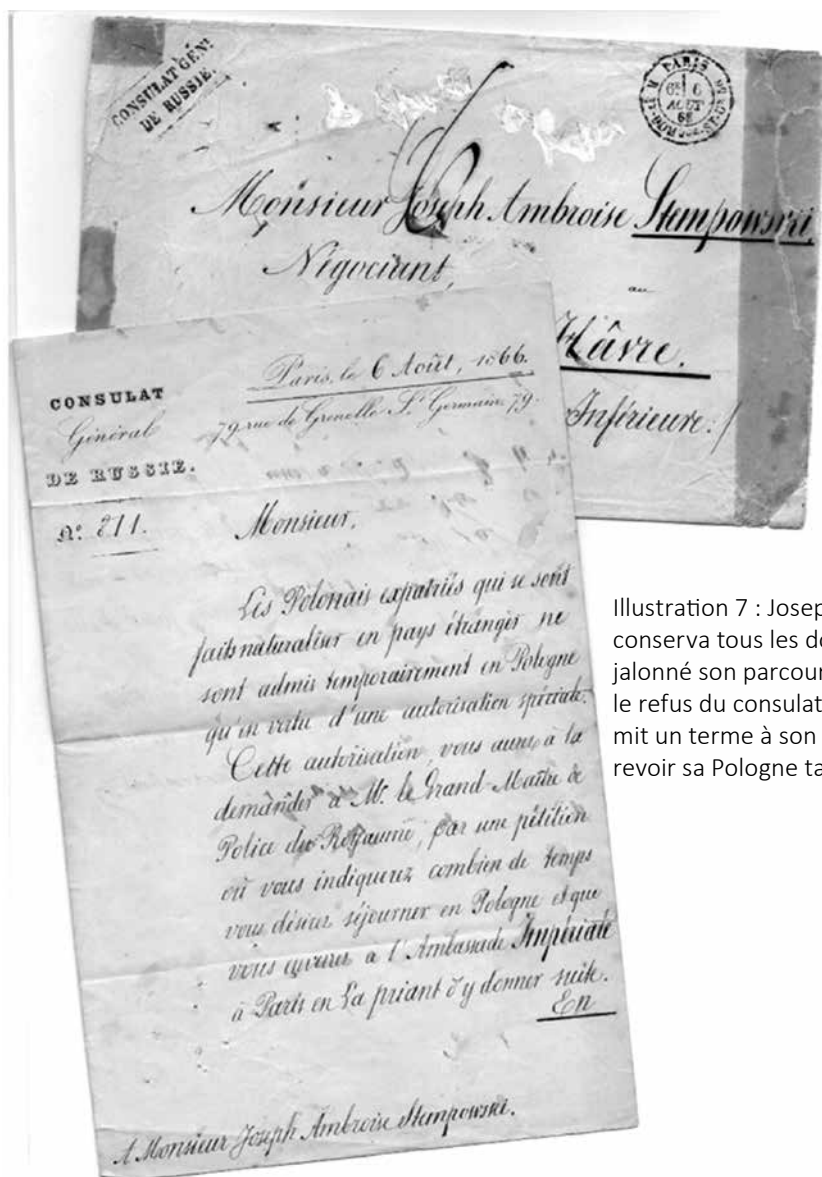 CONSULAT GÉNL
DE RUSSIE.
PARIS
6
AOUT
Monsieur Joseph Ambroise Stempowski,
Négociant,
au
Hâvre.
Inférieure
CONSULAT
Général
DE RUSSIE.
Nº 211.
Paris, le 6 Août, 1866.
79 rue de Grenelle St Germain 79.
Monsieur,
Les Polonais expatriés qui se sont
faits naturaliser en pays étranger ne
sont admis temporairement en Pologne
qu'en vertu d'une autorisation spéciale.
Cette autorisation, vous aurez à la
demander à Mr. le Grand-Maître de
Police du Royaume, par une pétition
où vous indiquerez combien de temps
vous désirez séjourner en Pologne et que
vous enverrez à l'Ambassade Impériale
à Paris en La priant d'y donner suite.
En
A Monsieur Joseph Ambroise Stempowski.
Illustration 7 : Josep
conserva tous les do
jalonné son parcour
le refus du consulat
mit un terme à son
revoir sa Pologne ta